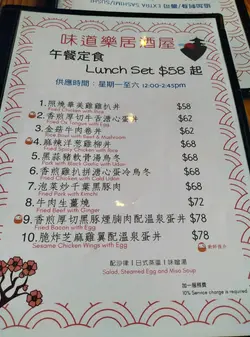 味道樂居酒屋
午餐定食
Lunch Set $58 起
供應時間：星期一至六 12:00-2:45pm
1. 照燒華美雞雞扒丼 $58
Fried Chicken with Rice
2. 香煎厚切牛舌溏心蛋丼 $62
Fried Ox Tongue with Egg
3. 金菇牛肉卷丼 $62
Rice Shot Beef & Mushroom
4. 麻辣洋葱雞柳丼 $58
Fried Spicy Chicken with Rice
5. 黑蒜豬軟骨湯烏冬 $68
Pork with Black Garlic with Udon
6. 香煎雞扒拼溏心蛋冷烏冬 $68
Fried Chicken with Cold Udon
7. 泡菜炒千葉黑豚肉 $68
Pork and Kimchi
8. 牛肉生薑燒 $72
Fried Beef with Ginger
9. 香煎厚切黑豚煙腩肉配溫泉蛋丼 $78
Fried Bacon with Egg
10. 脆炸芝麻雞翼配溫泉蛋丼 $78
Sesame Chicken Wings with Egg
廚師推介
配沙律 | 日式蒸蛋 | 味噌湯
Salad, Steamed Egg and Miso Soup
加一服務費
10% Service charge is required.